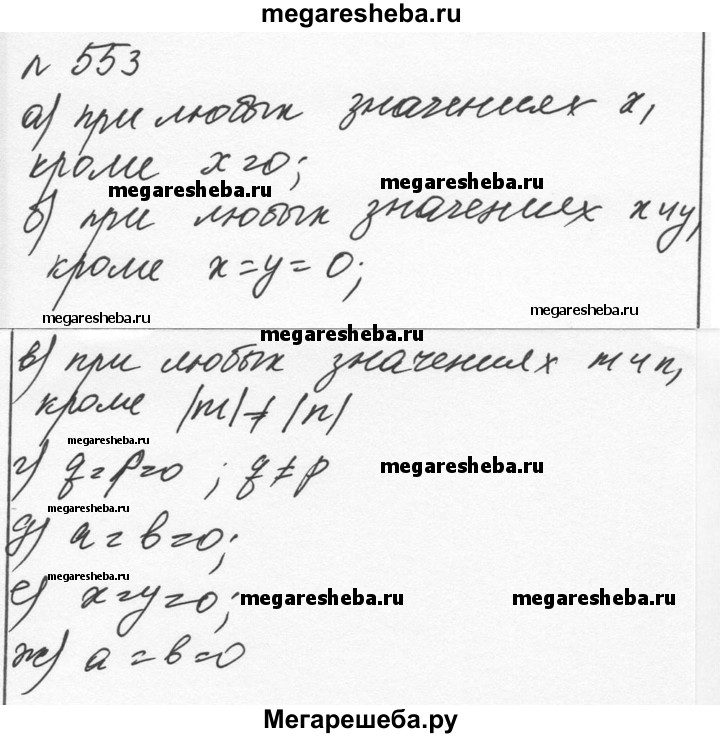 megaresheba.ru
n 553
а) при любых значениях x,
кроме x=0;
megaresheba.ru
megaresheba.ru
б) при любых значениях x и y,
кроме x=y=0;
megaresheba.ru
megaresheba.ru
megaresheba.ru
в) при любых значениях m и n,
кроме |m|≠|n|
megaresheba.ru
г) q=p=0; q≠p
megaresheba.ru
megaresheba.ru
д) a=b=0;
megaresheba.ru
е) x=y=0;
megaresheba.ru
megaresheba.ru
ж) a=b=0
Мегарешеба.ру